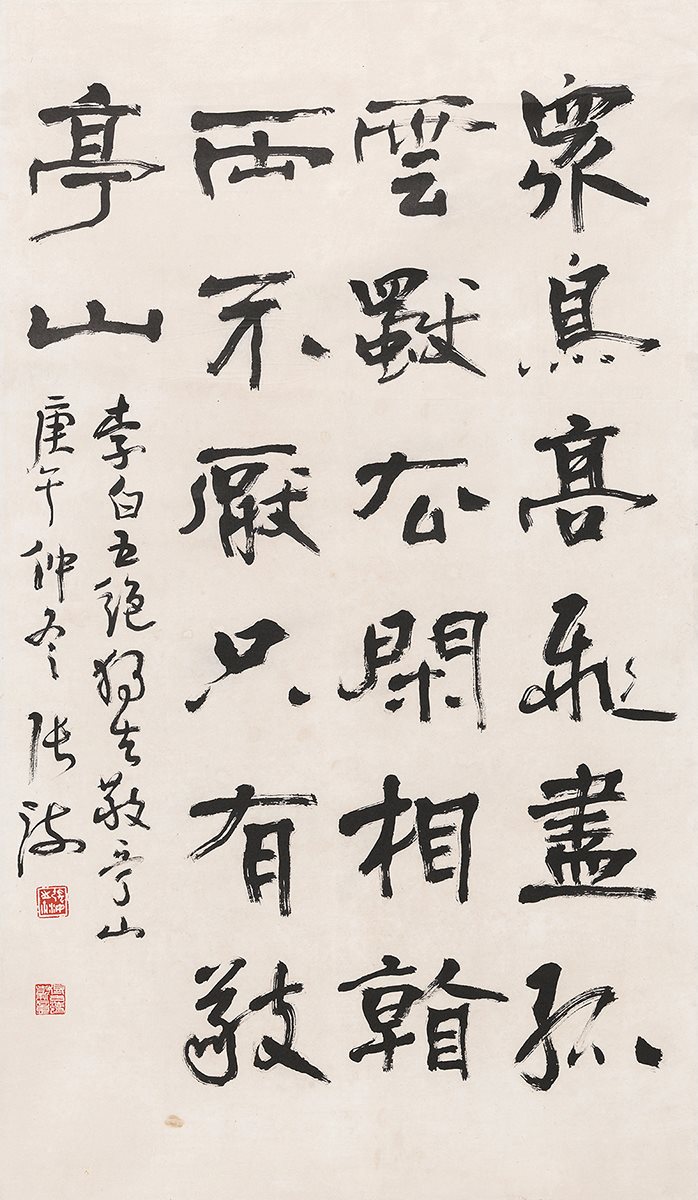 眾鳥高飛盡孤
雲獨厺閑相看
兩不厭只有敬
亭山
李白五絕獨坐敬亭山
庚午仲冬張